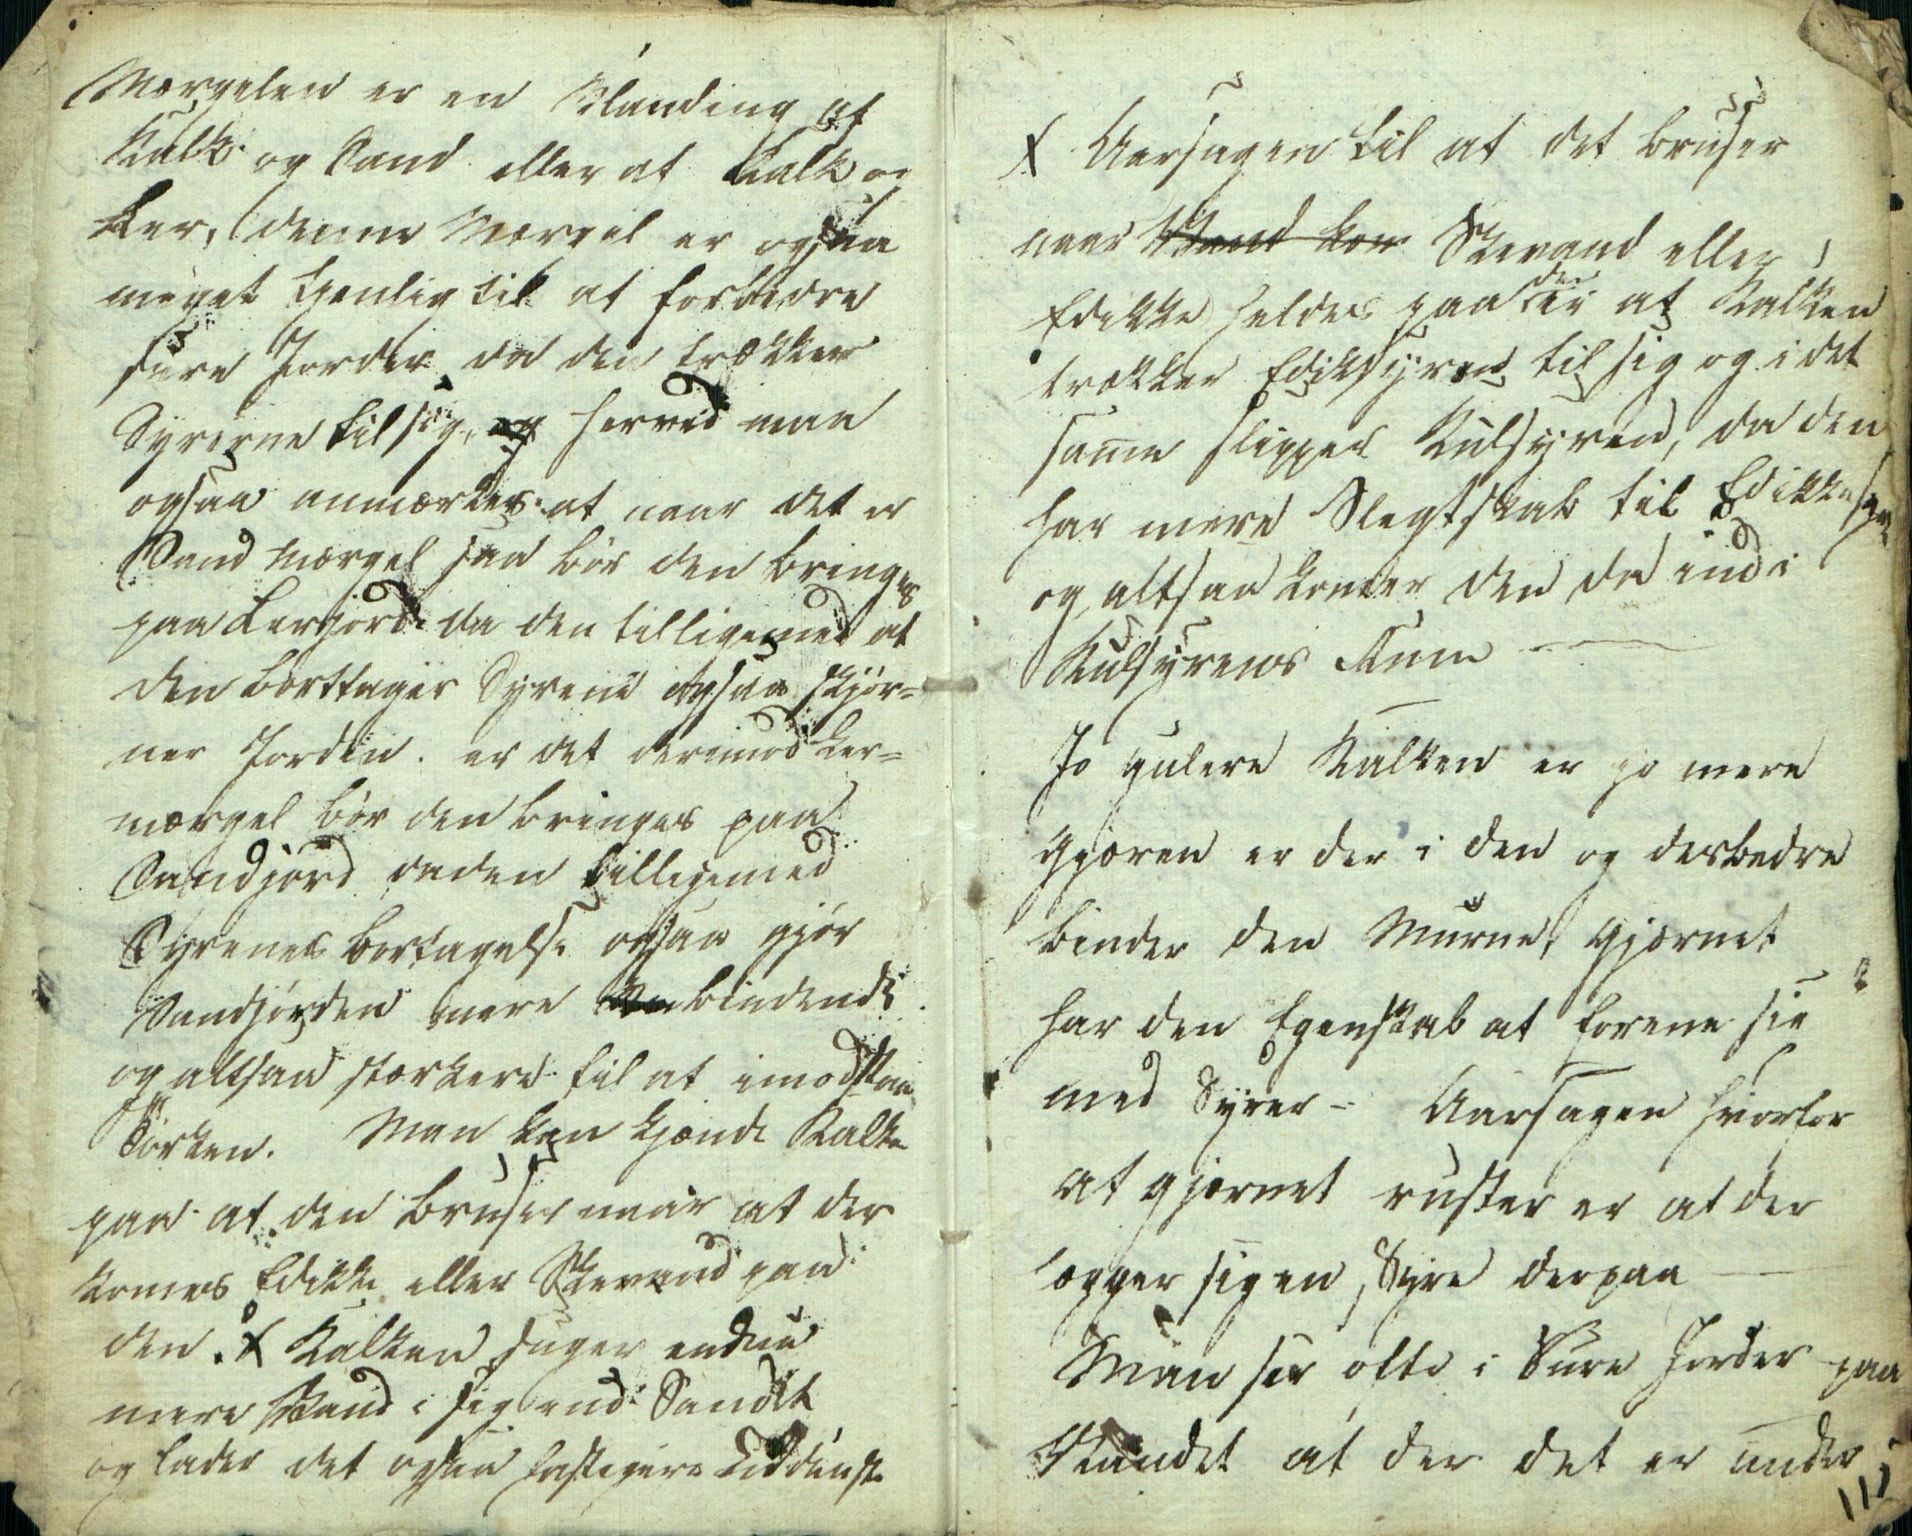 Mergelen er en Blanding af
Kalk og Sand eller at Kalk og
Leer, denne Mergel er ogsaa
meget tjenlig til at forbedre
sure Jorder da den trækker
Syrerne til sig, og herved maa
ogsaa anmærkes at naar det er
Sand mergel saa bör den bringes
paa Lerjord da den tilligemed at
den borttager Syrene ogsaa skjör-
ner Jorden. er det derimod Ler-
mergel bör den bringes paa
Sandjord daden tilligemed
Syrenes bortagelse ogsaa gjör
Sandjorden mere bindende
og altsaa stærkere til at imodstaa
Törken. Man kan kjende Kalke
paa at den bruser naar at der
komes Edikke eller Skevand paa
den. X Kalken suger endnu
mere Vand i sig end Sandet
og lader det ogsaa hastigere uddunste
X Aarsagen til at det bruser
naar Vand kom Skevand eller
Edikke heldes paa der er at Kalken
trækker Ediksyren til sig og i det
same slipper Kulsyren, da den
har mere Slegtskab til Edikkesyre
og altsaa komer den da ind i
Kulsyrens Rum —
Jo gulere Kalken er jo mere
Gjæren er der i den og desbedre
binder den Murne, Gjærnet
har den Egenskab at forene sig
med Syrer - Aarsagen hvorfor
at gjærnet ruster er at der
legger sig en Syre derpaa —
Man ser ofte i Sure Jorder paa
Vandet at der det er under